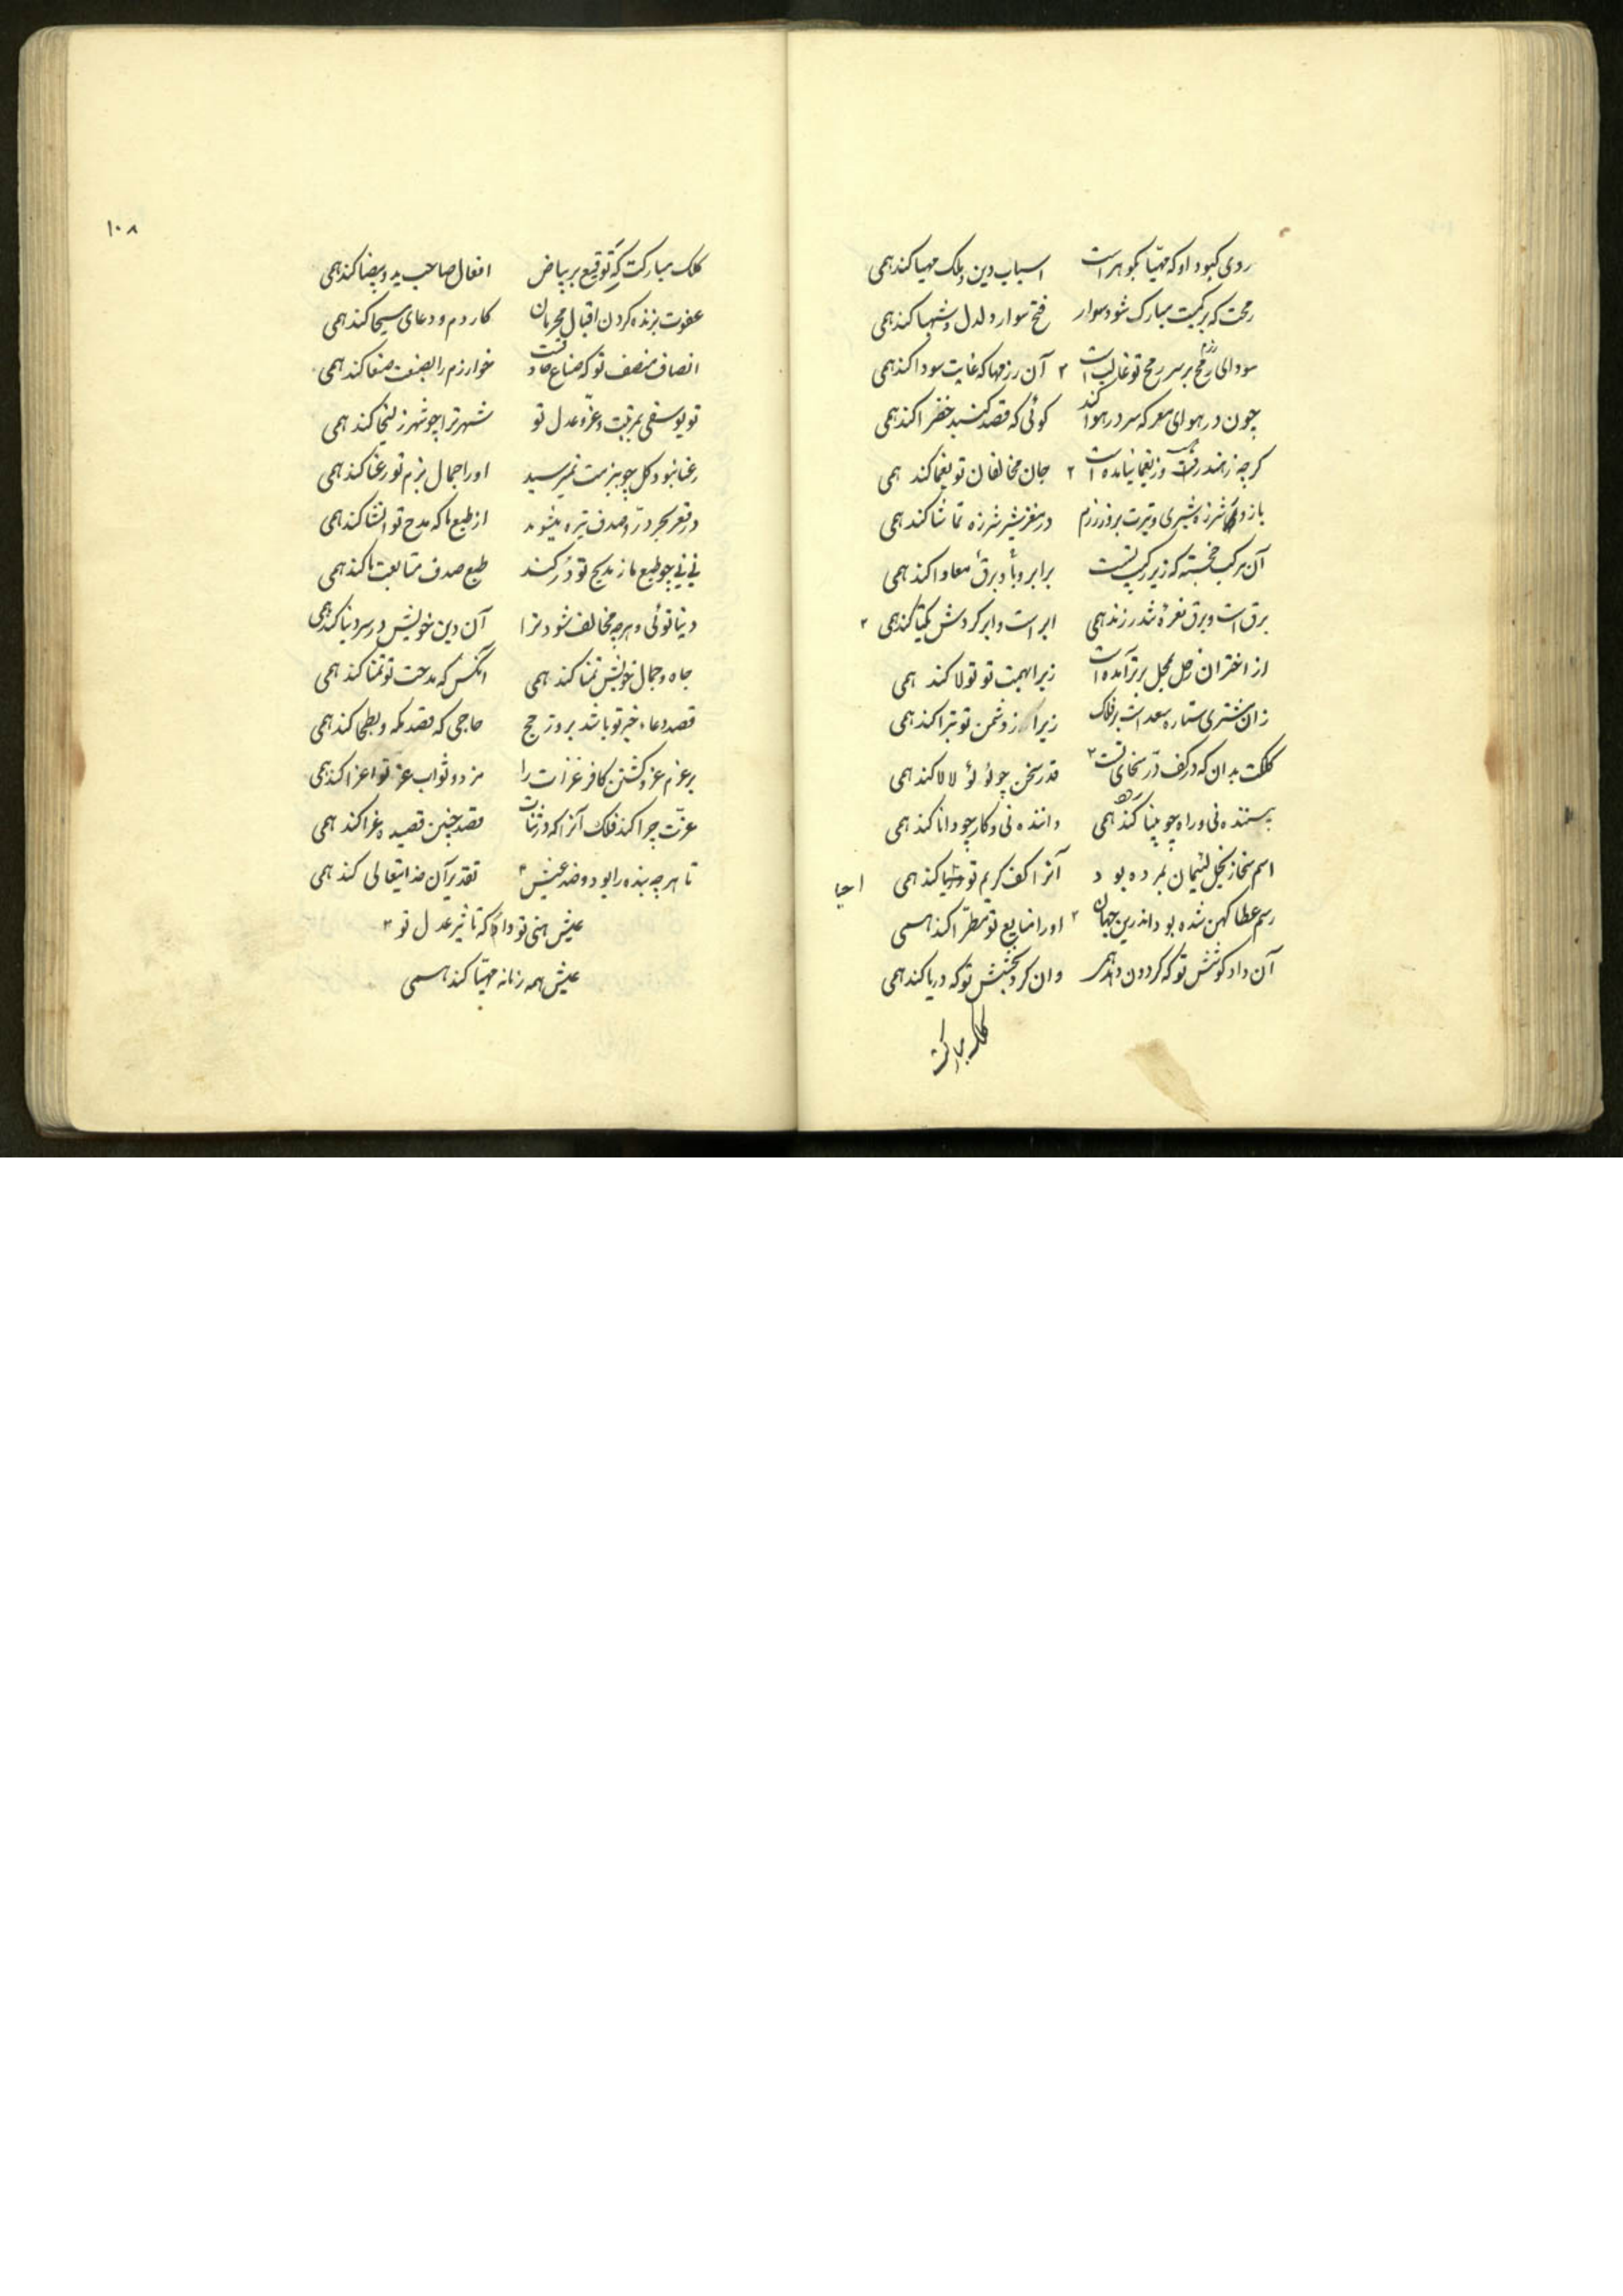 روی کبود او که مهیا بگوهر است اسباب دین و ملک مهیا کند همی
رمحت که بر کمیت مبارک شود سوار فتح سوار دلدل و شهبا کند همی
سودای رمح بر سر رمح تو غالب است آن رزمها که غایت سودا کند همی
چون در هوای معرکه سر در هوا کند کوئی که قصد کنبد خضرا کند همی
کرچه ز هند رفت وز یغما نیامده است جان مخالفان تو یغما کند همی
بازوی شرزه شیری و تیرت بروز رزم در مغز شیر شرزه تماشا کند همی
آن مرکب خجسته که زیر رکیب تست بر ابر و باد و برق معادا کند همی
برق است و برق نعره تندر زند همی ابر است و ابر کردش نکبا کند همی
از اختران زحل بمحل برتر آمده است زیرا بهمت تو تولا کند همی
زان مشتری ستاره سعد است بر فلک زیرا ز دشمن تو تبرا کند همی
کلکت بدان که در کف در سخای تست قدر سخن چو لؤلؤ لالا کند همی
بیننده نی و راه چو بینا کند همی داننده نی و کار چو دانا کند همی
اسم سخا ز بخل لئیمان بمرده بود آنرا کف کریم تو احیا کند همی
احیا
رسم عطا کهن شده بود اندرین جهان او را صنایع تو مطرا کند همی
آن داد کوشش تو که کردون دهد همی وان کرد بخشش تو که دریا کند همی
کلک مبارکت
۱۰۸
کلک مبارکت که توقیع بر بیاض افعال صاحب ید و بیضا کند همی
عفوت بزنده کردن اقبال مجرمان کار دم و دعای مسیحا کند همی
انصاف منصف تو که صناع حاذقست خوارزم را بصنعت صنعا کند همی
تو یوسفی بمرتبت و عزو عدل تو شهر ترا چو شهر زلیخا کند همی
رعنا نبود کل چو ببزمت نمیرسید او را جمال بزم تو رعنا کند همی
در قعر بحر در و صدف تیره میشوند از طبع ما که مدح تو انشا کند همی
نی نی چو طبع ما ز مدیح تو در کند طبع صدف متابعت ما کند همی
دنیا توئی و هرچه مخالف شود ترا آن دین خویش در سر دنیا کند همی
جاه و جمال خویش تمنا کند همی آنکس که مدحت تو تمنا کند همی
قصد دعاء خیر تو باشد بروز حج حاجی که قصد مکه و بطحا کند همی
بر عزم عزو کشتن کافر غزات را مزد و ثواب عز تو اعزا کند همی
عزت چرا کند فلک آنرا که در ثنات قصد چنین قصیده غرا کند همی
تا هرچه بنده را بود و ضد عیش تقدیر آن خدایتعالی کند همی
عیش هنی تو دار که تاثیر عدل تو
عیش همه زمانه مهنا کند همی